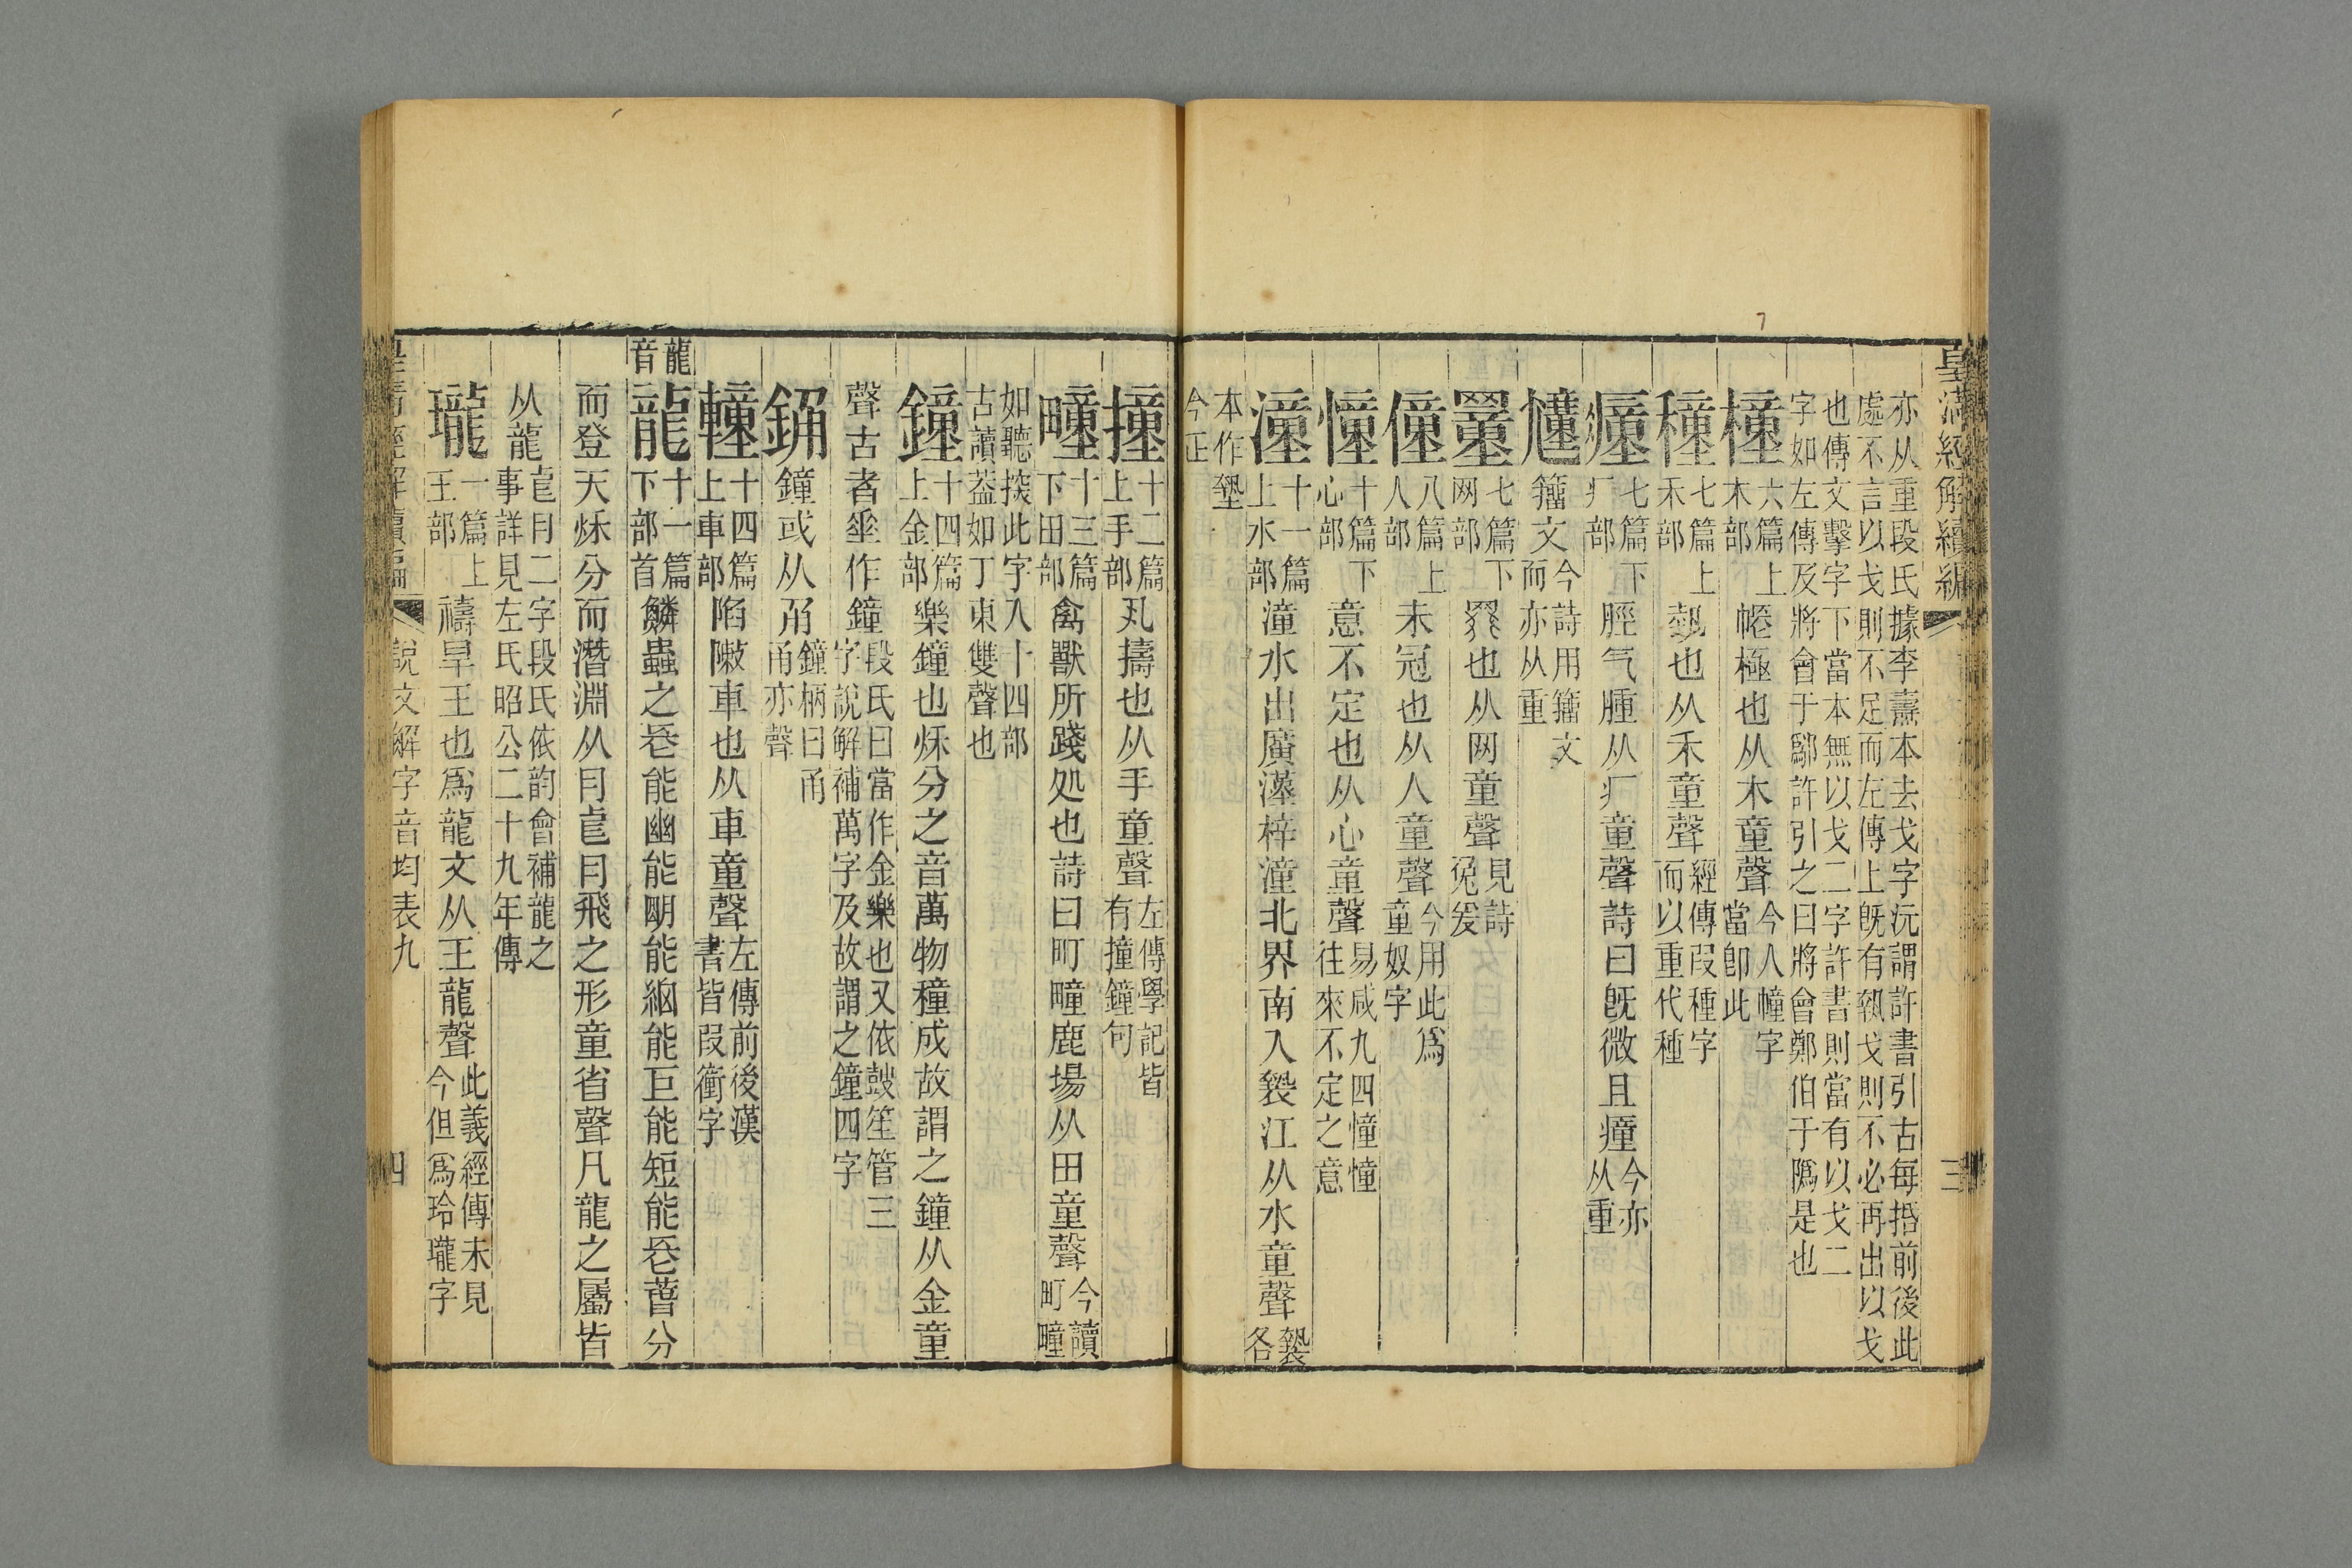 皇清經解續編
三
亦从重段氏據李燾本去戈字沅謂許書引古每揝前後此
處不言以戈則不足而左傳上旣有執戈則不必再出以戈
也傳文擊字下當本無以戈二字許書則當有以戈二
字如左傳及將會于鄢許引之曰將會鄭伯于隝是也
橦六篇上木部帣極也从木童聲今人幢字當卽此
穜七篇上禾部埶也从禾童聲經傳叚種字而以重代種
㿈七篇下疒部脛气腫从疒童聲詩曰旣微且㿈今亦从重
籒文今詩用籒文而亦从重
罿七篇下网部罬也从网童聲見詩兔爰
僮八篇上人部未冠也从人童聲今用此爲童奴字
憧十篇下心部意不定也从心童聲易咸九四憧憧往來不定之意
潼十一篇上水部潼水出廣漢梓潼北界南入褺江从水童聲褺各
本作墊今正
撞十二篇上手部丮擣也从手童聲左傳學記皆有撞鐘句
疃十三篇下田部禽獸所踐処也詩曰町疃鹿場从田童聲今讀町疃
如聽揬此字入十四部古讀葢如丁東雙聲也
鐘十四篇上金部樂鐘也秌分之音萬物穜成故謂之鐘从金童
聲古者垂作鐘段氏曰當作金樂也又依鼓笙管三字說解補萬字及故謂之鐘四字
銿鐘或从甬鐘柄曰甬甬亦聲
䡴十四篇上車部陷敶車也从車童聲左傳前後漢書皆叚衝字
龍音
龍十一篇下部首鱗蟲之長能幽能朙能細能巨能短能長萅分
而登天秌分而潛淵从⺼㠯⺼飛之形童省聲凡龍之屬皆
从龍㠯⺼二字段氏依韵會補龍之事詳見左氏昭公二十九年傳
瓏一篇上王部禱旱王也爲龍文从王龍聲此義經傳未見今但爲玲瓏字
皇清經解續編
說文解字音均表九
四